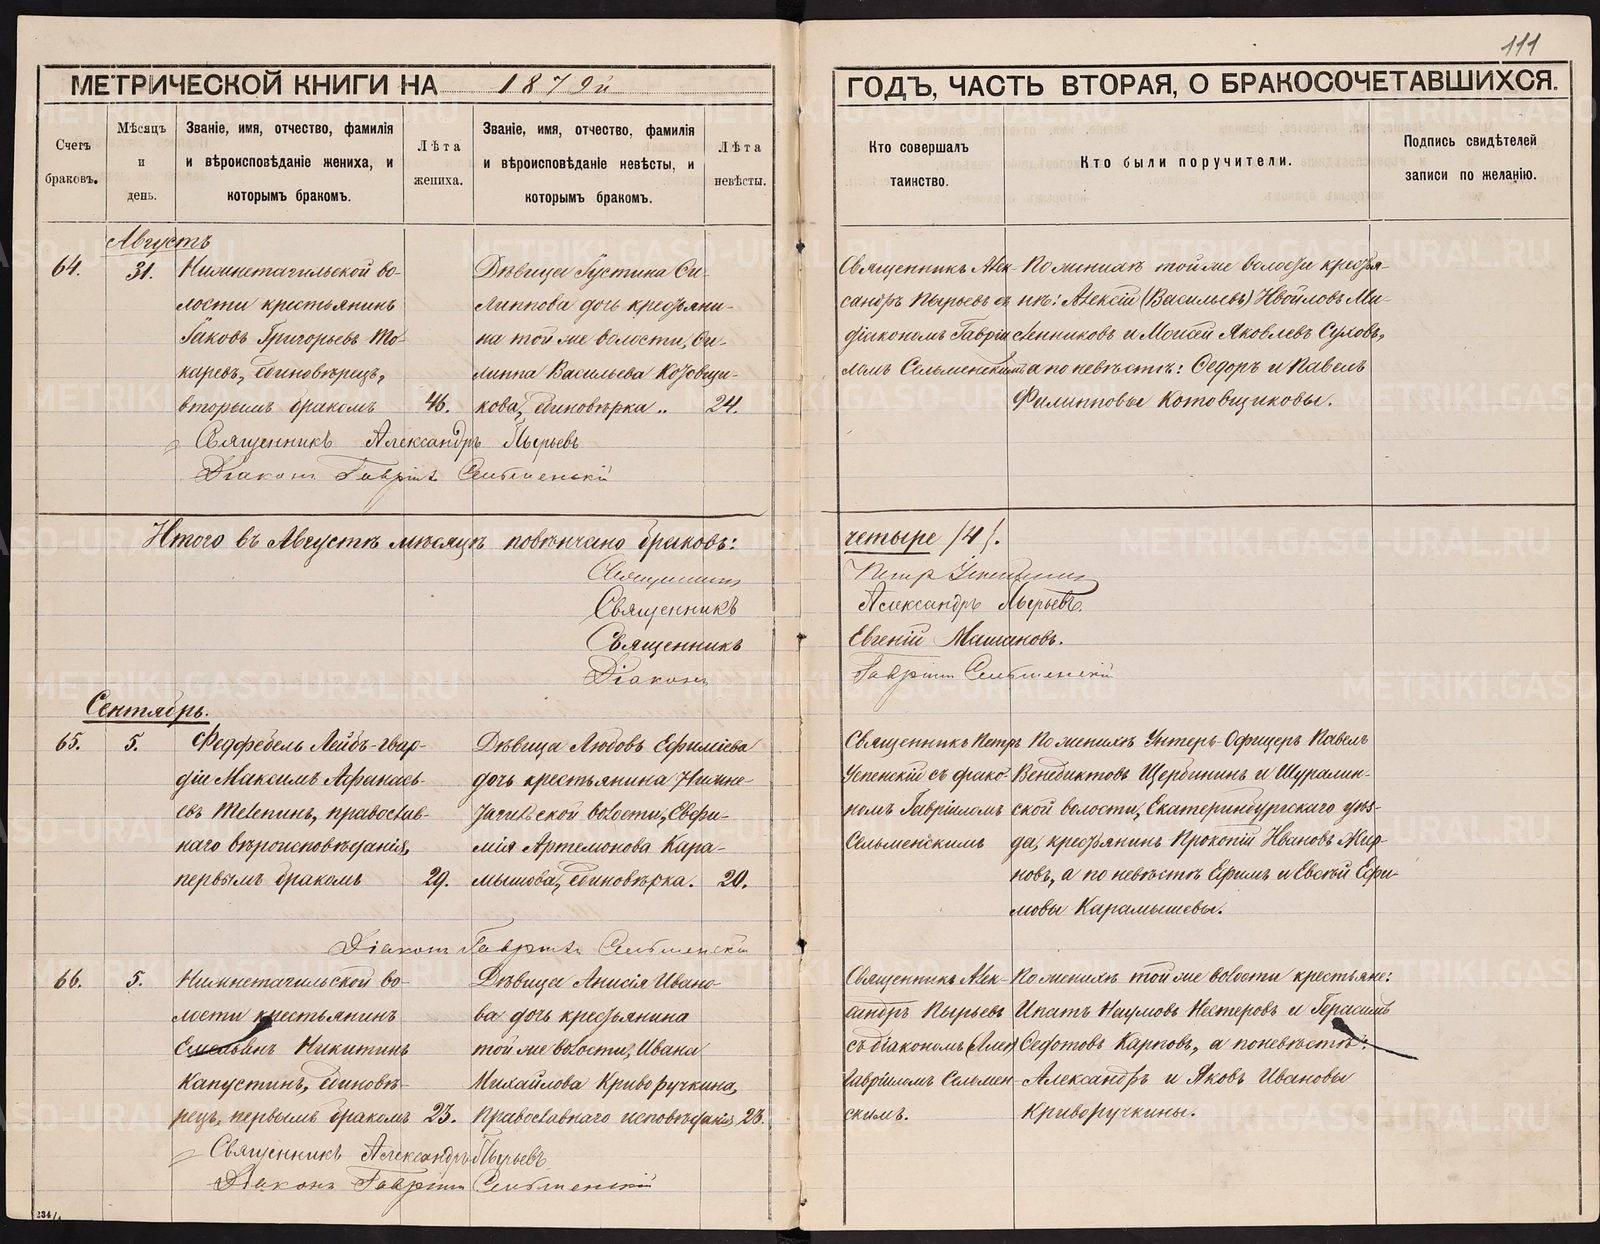 111
МЕТРИЧЕСКОЙ КНИГИ НА 1879й
ГОДЪ, ЧАСТЬ ВТОРАЯ, О БРАКОСОЧЕТАВШИХСЯ.
Счетъ браковъ.
Мѣсяцъ и день.
Званіе, имя, отчество, фамилія
и вѣроисповѣданіе жениха, и
которымъ бракомъ.
Лѣта жениха.
Званіе, имя, отчество, фамилія
и вѣроисповѣданіе невѣсты, и
которымъ бракомъ.
Лѣта невѣсты.
Кто совершалъ
таинство.
Кто были поручители.
Подпись свидѣтелей
записи по желанію.
Августъ
64.
31.
Нижнетагильской во-
лости крестьянинъ
Іаковъ Григорьевъ То-
каревъ, единовѣрецъ,
вторымъ бракомъ
46.
Дѣвица Густина Фи-
липпова дочь крестьяни-
на той же волости, Фи-
липпа Васильева Котовщи-
кова, единовѣрка
24.
Священникъ Алек-
сандръ Пырьевъ съ
діакономъ Гаврии-
ломъ Сельменскимъ
По женихѣ той же волости крестья-
не: Алексій (Васильевъ) Ивойловъ Мя-
сенниковъ и Моисей Яковлевъ Суховъ,
а по невѣстѣ: Федоръ и Павелъ
Филипповы Котовщиковы.
Священникъ Александръ Пырьевъ
Діаконъ Гавріилъ Сельменскій
Итого въ Августѣ мѣсяцѣ повѣнчано браковъ:
четыре /4/.
Священникъ Петръ Успенскій
Священникъ Александръ Пырьевъ.
Священникъ Евгеній Машановъ.
Діаконъ Гавріилъ Сельменскій
Сентябрь.
65.
5.
Федфебель Лейбъ-гвар-
діи Максимъ Афанась-
евъ Мелепинъ, православ-
наго вѣроисповѣданія,
первымъ бракомъ
29.
Дѣвица Любовь Ефиміева
дочь крестьянина Нижне-
тагильской волости, Евфи-
мія Артемонова Кара-
мышова, единовѣрка.
20.
Священникъ Петръ
Успенскій съ діако-
номъ Гавріиломъ
Сельменскимъ
По женихѣ Унтеръ-Офицеръ Павелъ
Венедиктовъ Щербининъ и Шуралин-
ской волости, Екатеринбургскаго уѣз-
да, крестьянинъ Прокопій Ивановъ Жир-
новъ, а по невѣстѣ Ефимъ и Евсѣй Ефи-
мовы Карамышевы.
Діаконъ Гавріилъ Сельменскій
66.
5.
Нижнетагильской во-
лости крестьянинъ
Емельянъ Никитинъ
Капустинъ, единовѣ-
рецъ, первымъ бракомъ
23.
Дѣвица Анисія Ивано-
ва дочь крестьянина
той же волости, Ивана
Михайлова Криворучкина,
Православнаго исповѣданія
23.
Священникъ Алек-
сандръ Пырьевъ
съ діакономъ
Гавріиломъ Сельмен-
скимъ.
По женихѣ той же волости крестьяне:
Ипатъ Наумовъ Нестеровъ и Герасимъ
Федотовъ Карповъ, а по невѣстѣ:
Александръ и Яковъ Ивановы
Криворучкины.
Священникъ Александръ Пырьевъ
Діаконъ Гавріилъ Сельменскій
METRIKI.GASO-URAL.RU